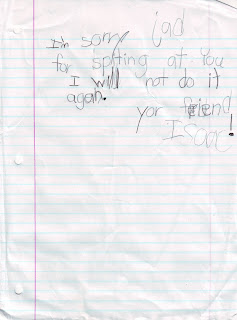 jad
I'm sorry
for spiting at you
I will not do it
again.
yor friend
Isaac!